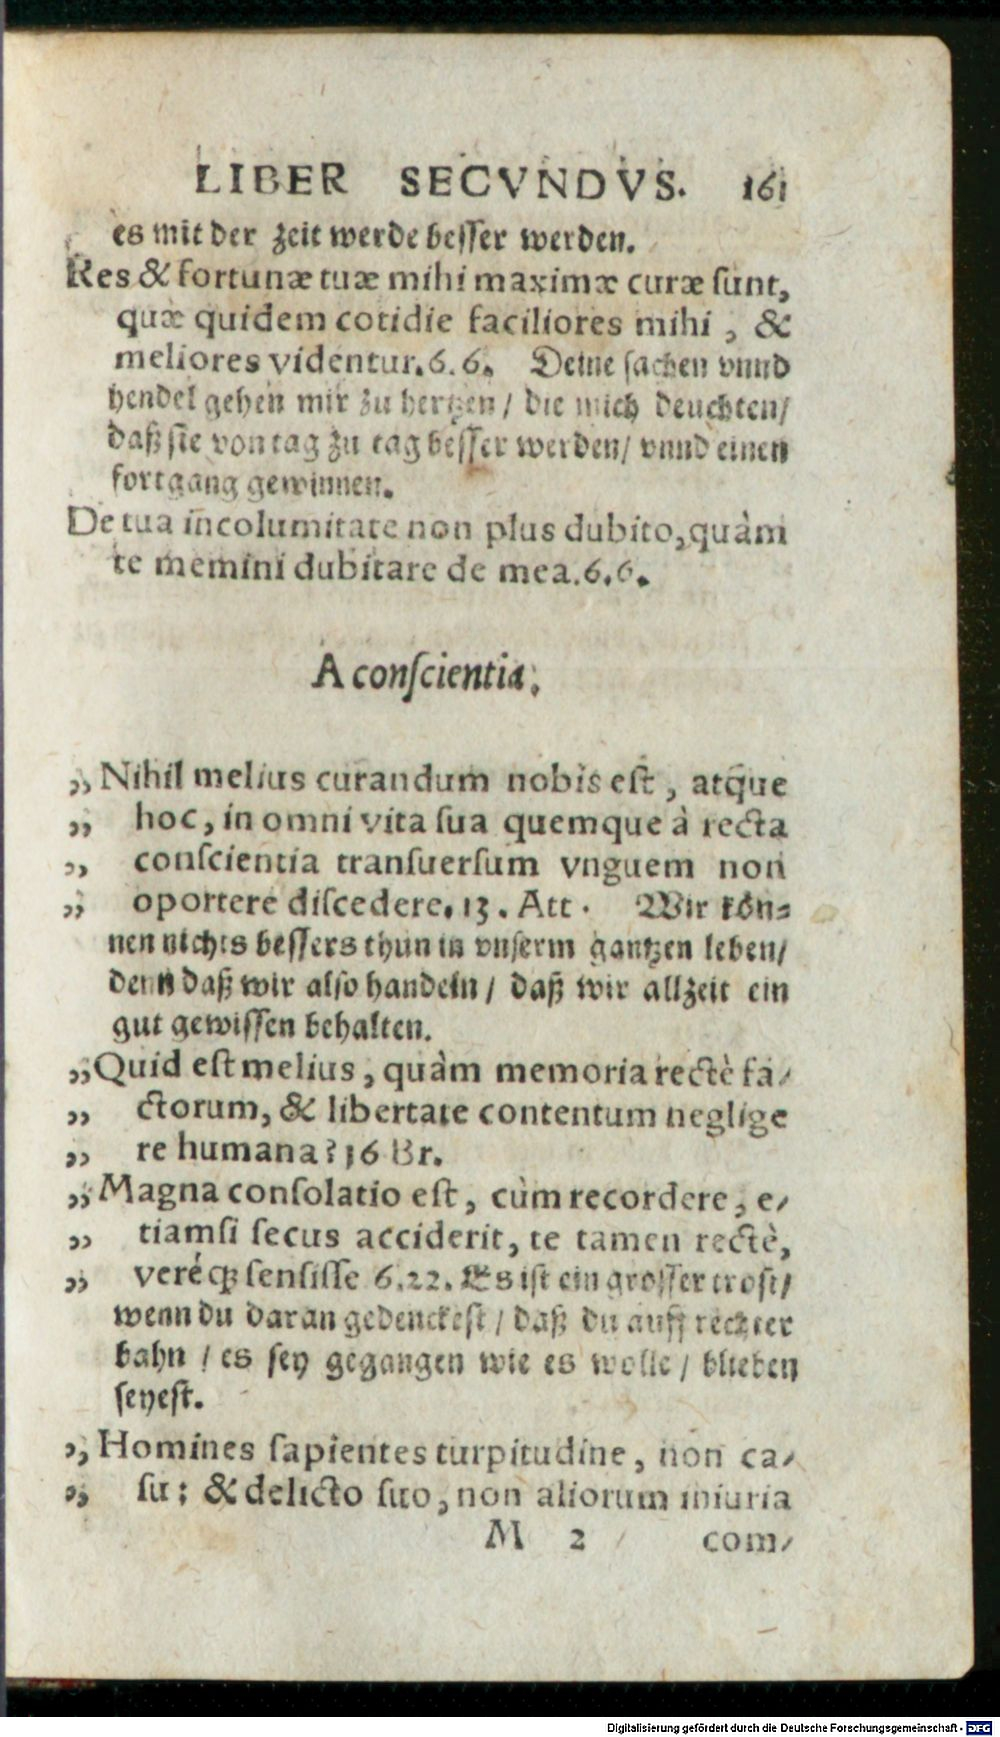 LIBER SECVNDVS. 161
es mit der zeit werde besser werden.
Res & fortunæ tuæ mihi maximæ curæ sunt,
quæ quidem cotidie faciliores mihi , &
meliores videntur. 6. 6. Deine sachen vnnd
hendel gehen mir zu hertzen / die mich deuchten/
daß sie von tag zu tag besser werden/ vnnd einen
fortgang gewinnen.
De tua incolumitate non plus dubito, quàm
te memini dubitare de mea. 6. 6.
A conſcientia.
„ Nihil melius curandum nobis eſt , atque
„ hoc, in omni vita ſua quemque à recta
„ conſcientia tranſuerſum vnguem non
„ oportere diſcedere. 13. Att. Wir kön⸗
nen nichts beſſers thun in vnſerm gantzen leben/
denn daß wir alſo handeln / daß wir allzeit ein
gut gewiſſen behalten.
„ Quid eſt melius , quàm memoria rectè fa-
„ ctorum, & libertate contentum neglige
„ re humana? 16 Br.
„ Magna conſolatio eſt, cùm recordere, e-
„ tiamſi ſecus acciderit, te tamen rectè,
„ veréq; ſenſiſſe 6. 22. Es iſt ein groſſer troſt/
wenn du daran gedenckeſt / daß du auff rechter
bahn / es ſey gegangen wie es wolle / blieben
ſeyeſt.
„ Homines ſapientes turpitudine, non ca-
„ ſu; & delicto ſuo, non aliorum iniuria
M 2 com-
Digitalisierung gefördert durch die Deutsche Forschungsgemeinschaft - DFG